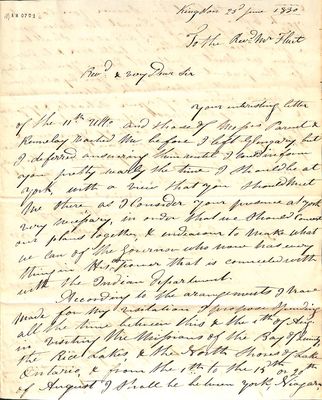 Kingston 23d June 1830
To the Revd. Mr
Revd. & very Dear Sir
your interesting letter
of the 11th Ulto. and those of Messrs
reached me before I left Glengary but
I deferred answering them until I could inform
you pretty nearly the time I should be at
York, with a view that you should meet
me there as I consider your presence at York
very necessary, in order that we should concert
our plans together & endeavour to make what
we can of the Governor who now has every
thing in His Power that is connected with
with the Indian Department.
According to the arrangements I have
made for my visitation I propose spending
all the time between this & the 1st of Aug.
in visiting the Missions of the Bay of
the Rice Lakes, & the North Shores of Lake
Ontario, & from the to the 15th or 20th
of August I shall be between York, Niagara